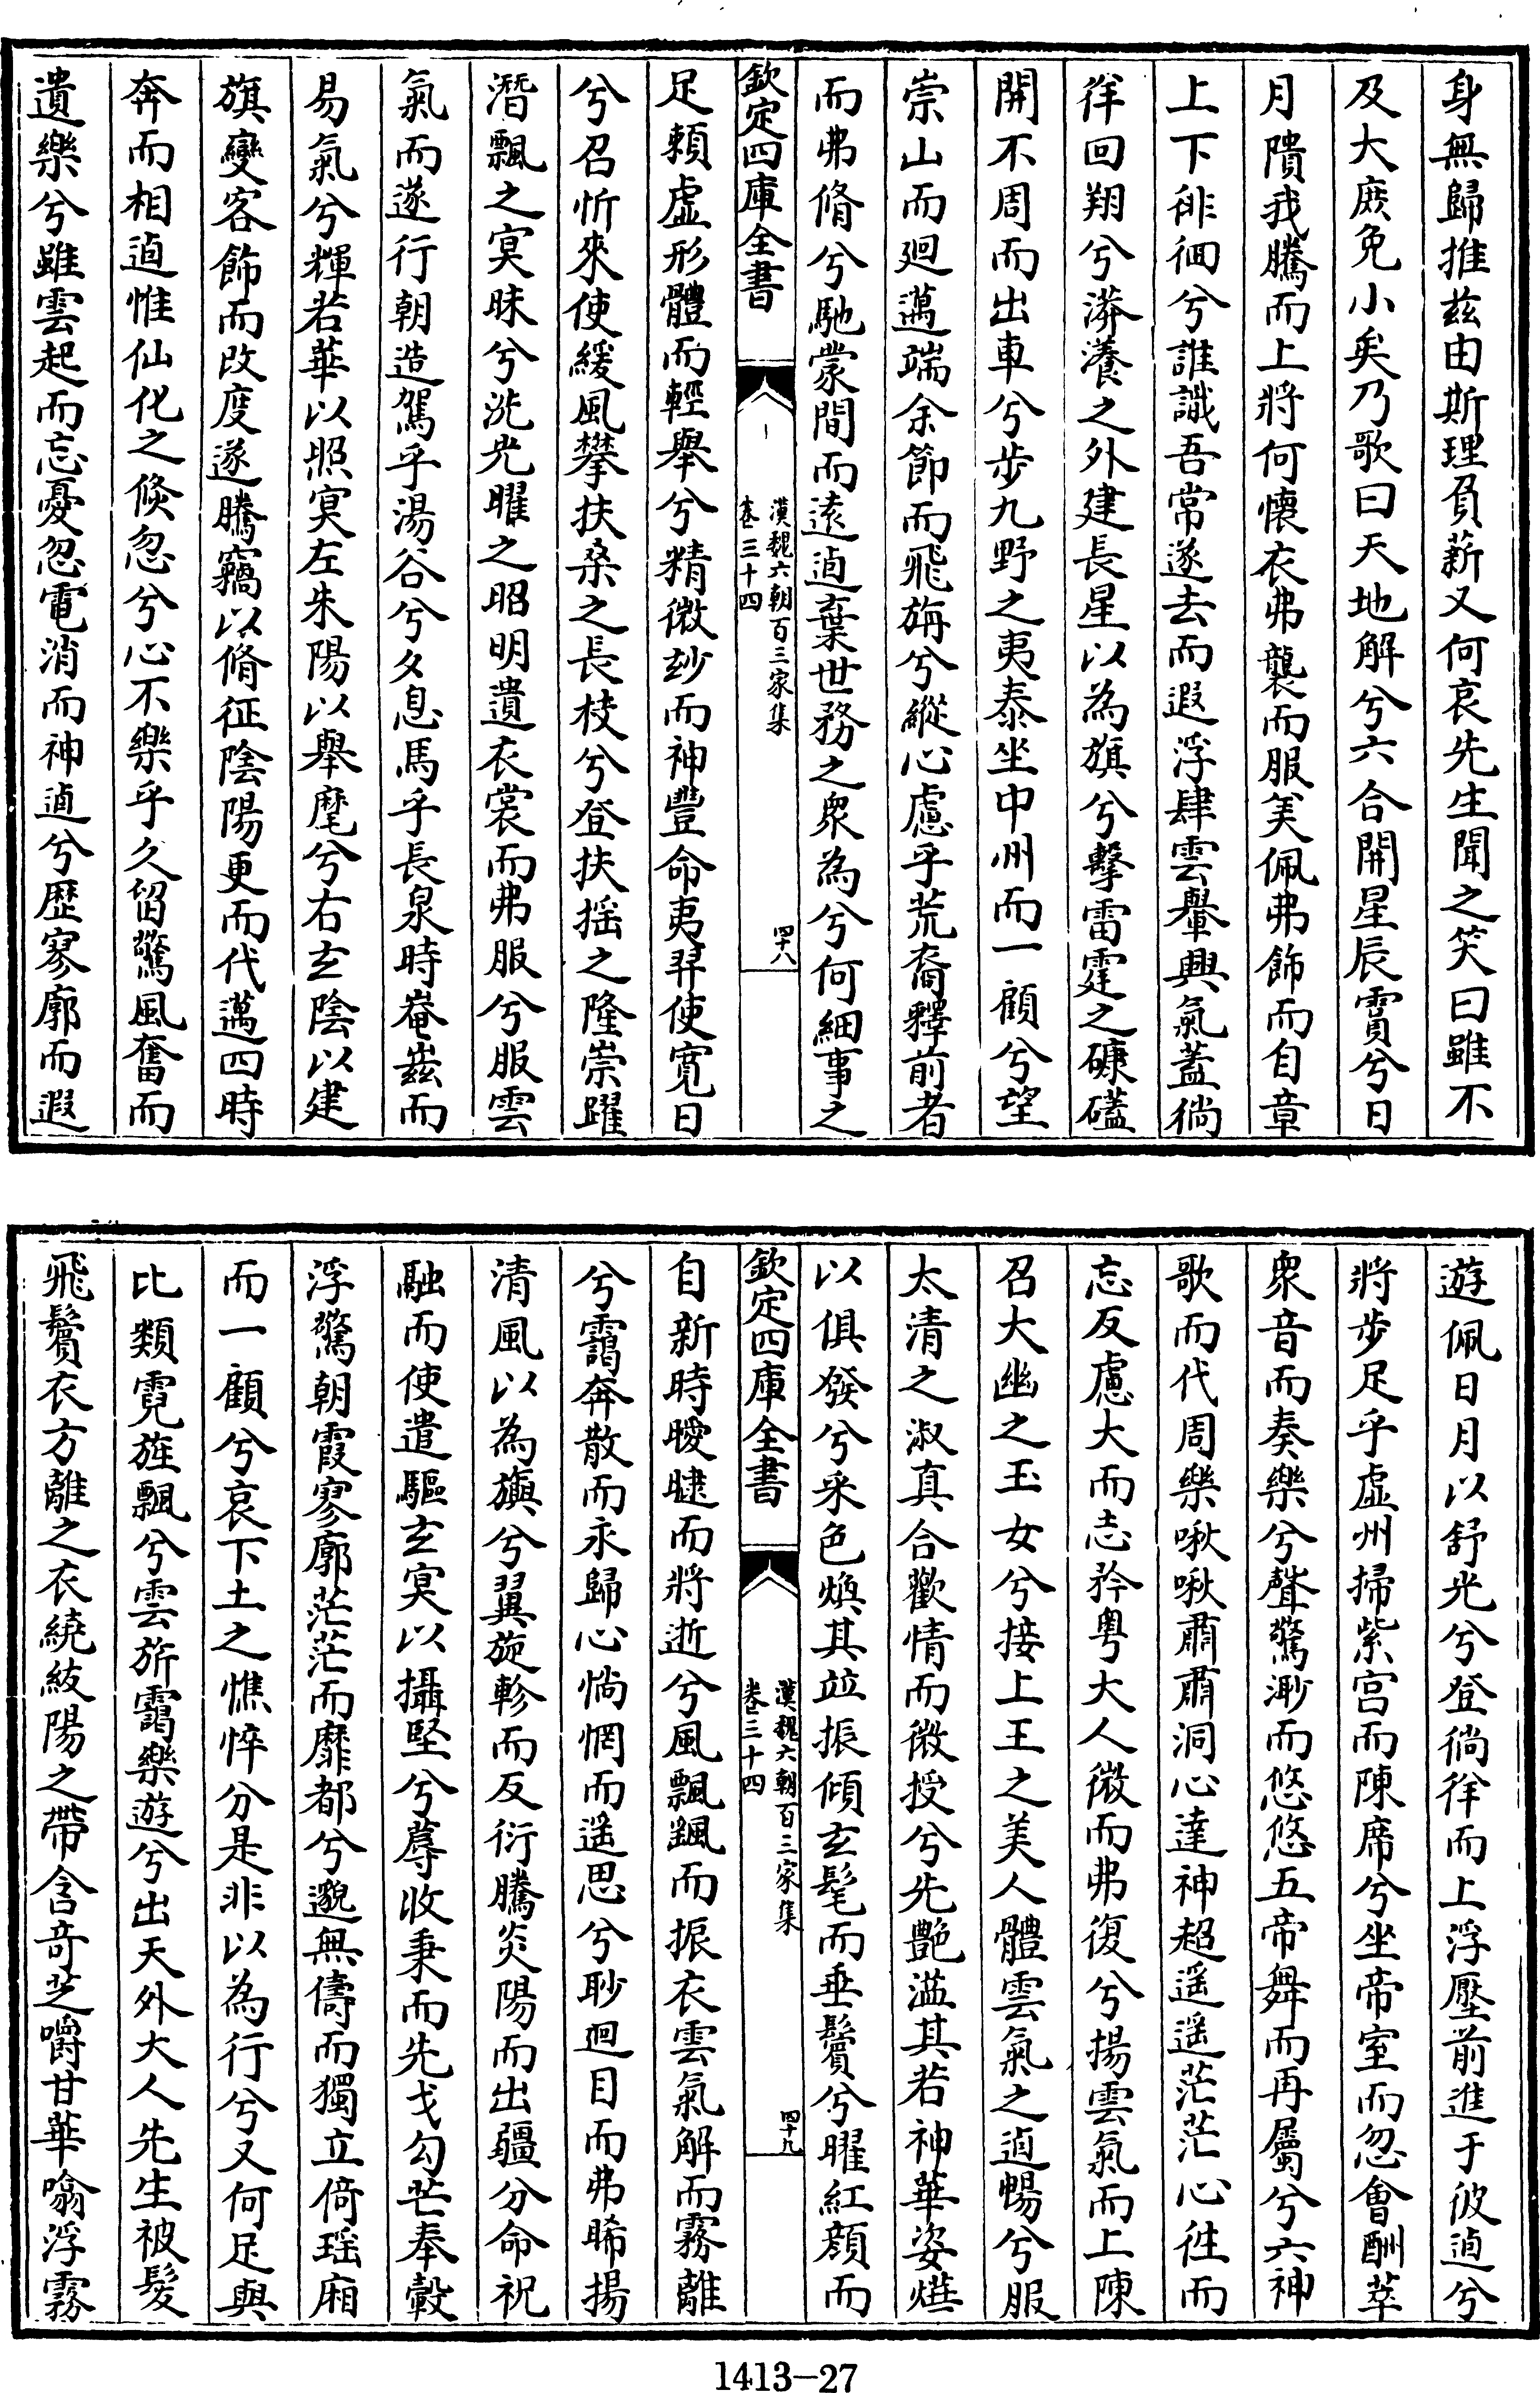 身無歸推茲由斯理負薪又何哀先生聞之笑曰雖不
及大庶免小矣乃歌曰天地解兮六合開星辰霣兮日
月隤我騰而上將何懷衣弗襲而服美佩弗飾而自章
上下徘徊兮誰識吾常遂去而遐浮肆雲轝興氣蓋徜
徉回翔兮漭瀁之外建長星以為旗兮擊雷霆之䃔礚
開不周而出車兮步九野之夷泰坐中州而一顧兮望
崇山而迴邁端余節而飛旃兮縱心慮乎荒裔釋前者
而弗脩兮馳蒙間而遠逌棄世務之衆為兮何細事之
欽定四庫全書
漢魏六朝百三家集
卷三十四
四十八
足賴虛形體而輕舉兮精微妙而神豐命夷羿使寛日
兮召忻來使緩風攀扶桑之長枝兮登扶揺之隆崇躍
潛飄之㝠昧兮洗光曜之昭明遺衣裳而弗服兮服雲
氣而遂行朝造駕乎湯谷兮夕息馬乎長泉時崦嵫而
易氣兮輝若華以照㝠左朱陽以舉麾兮右𤣥陰以建
旗變容飾而改度遂騰竊以脩征陰陽更而代邁四時
奔而相逌惟仙化之倏忽兮心不樂乎久留驚風奮而
遺樂兮雖雲起而忘憂忽電消而神逌兮歴寥廓而遐
遊佩日月以舒光兮登徜徉而上浮壓前進于彼逌兮
將步足乎虛州掃紫宫而陳席兮坐帝室而忽會酬萃
衆音而奏樂兮聲驚渺而悠悠五帝舞而再屬兮六神
歌而代周樂啾啾肅肅洞心達神超遥遥茫茫心徃而
忘反慮大而志矜粤大人微而弗復兮揚雲氣而上陳
召大幽之玉女兮接上王之美人體雲氣之逌暢兮服
太清之淑真合歡情而微授兮先艷溢其若神華姿燁
以俱發兮采色煥其竝振傾𤣥髦而垂鬢兮曜紅顔而
欽定四庫全書
漢魏六朝百三家集
卷三十四
四十九
自新時曖𣉙而將逝兮風飄颻而振衣雲氣解而霧離
兮靄奔散而永歸心惝惘而遥思兮眇迴目而弗晞揚
清風以為旟兮翼旋軫而反衍騰炎陽而出疆分命祝
融而使遣驅𤣥㝠以攝堅兮蓐收秉而先戈勾芒奉轂
浮驚朝霞寥廓茫茫而靡都兮邈無儔而獨立倚瑶廂
而一顧兮哀下土之憔悴分是非以為行兮又何足與
比類霓旌飄兮雲旂靄樂遊兮出天外大人先生被髮
飛鬢衣方離之衣繞紱陽之帶含奇芝嚼甘華噏浮霧
1413-27